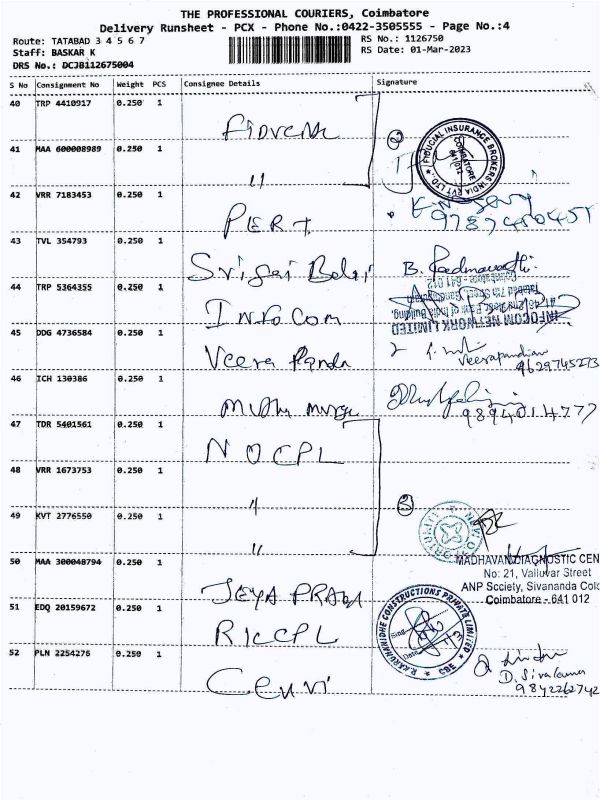 THE PROFESSIONAL COURIERS, Coimbatore
Delivery Runsheet - PCX - Phone No.:0422-3505555 - Page No.:4
Route: TATABAD 3 4 5 6 7
RS No.: 1126750
Staff: BASKAR K
RS Date: 01-Mar-2023
DRS No.: DCJB112675004
S No Consignment No Weight PCS Consignee Details Signature
40 TRP 4410917 0.250 1
2
FIDUCIAL INSURANCE BROKERS INDIA PVT LTD. COIMBATORE 641 012
41 MAA 600008989 0.250 1 "
42 VRR 7183453 0.250 1 PERT
43 TVL 354793 0.250 1 Sri Sai Balaji B. Padmavathi.
44 TRP 5364355 0.250 1 Infocom
INFOCOM NETWORK LIMITED
Tatabad 7th Street, Gandhipuram
Coimbatore - 641 012
45 DDG 4736584 0.250 1 Veera Pandi Veerapandian
9629745273
46 ICH 130386 0.250 1
9894014777
47 TDR 5401561 0.250 1 NOCPL
48 VRR 1673753 0.250 1 "
3
49 KVT 2776550 0.250 1 "
50 MAA 300048794 0.250 1 JEYA PRABA
MADHAVAN DIAGNOSTIC CEN
No: 21, Valluvar Street
ANP Society, Sivananda Colo
Coimbatore - 641 012
51 EDQ 20159672 0.250 1 RKCPL
R.KARUNANIDHE CONSTRUCTIONS PRIVATE LIMITED CBE
Sing
Date
52 PLN 2254276 0.250 1
D. Sivakumar
9842262742